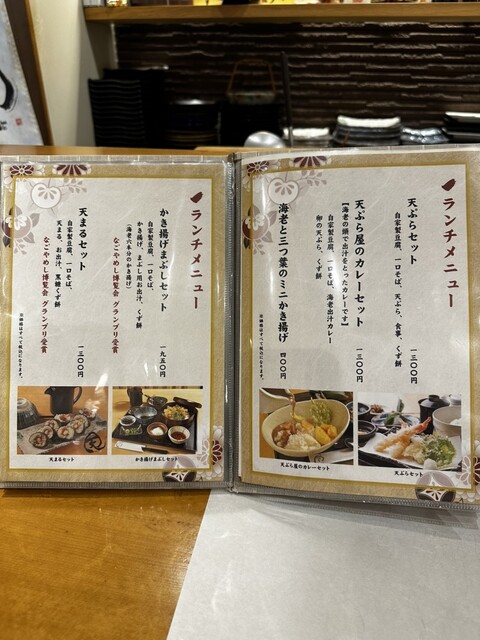 ランチメニュー
天ぷらセット
自家製豆腐、一口そば、天ぷら、食事、くず餅
一三〇〇円
天ぷら屋のカレーセット
【海老の頭で出汁をとったカレーです】
自家製豆腐、一口そば、海老出汁カレー
卵の天ぷら、くず餅
一三〇〇円
海老と三つ葉のミニかき揚げ
四〇〇円
※価格はすべて税込になります。
天ぷら屋のカレーセット
天ぷらセット
ランチメニュー
かき揚げまぶしセット
自家製豆腐、一口そば、
かき揚げ、まぶし用お出汁、くず餅
(海老六本分のかき揚げ)
なごやめし博覧会 グランプリ受賞
一九五〇円
天まるセット
自家製豆腐、一口そば、
天まる、お出汁、黒糖くず餅
なごやめし博覧会 グランプリ受賞
一三〇〇円
※価格はすべて税込になります。
天まるセット
かき揚げまぶしセット